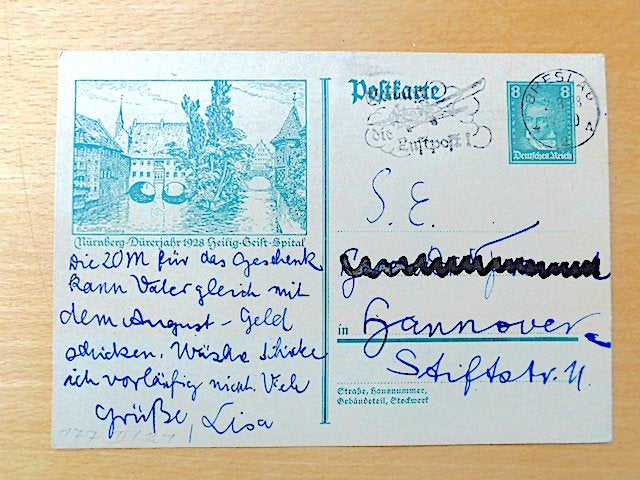 Nürnberg-Dürerjahr 1928 Heilig-Geist-Spital
Die 20 M für das Geschenk
kann Vater gleich mit
dem August-Geld
schicken. Wäsche schicke
ich vorläufig nicht. Viele
Grüße, Lisa
Postkarte
die
Luftpost!
BRESLAU
A
8 8
Deutsches Reich
S. E.
in Hannover
Stiftstr. 11.
Straße, Hausnummer,
Gebäudeteil, Stockwerk